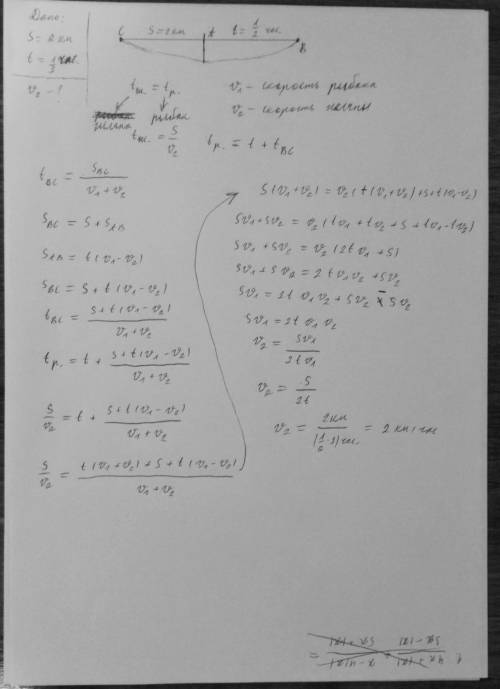 Дано:
S = 2 км
t = 1/3 час.
v₂ - ?
C S = 2 км A t = 1/2 час. B
tж. = tр.
рыбак
tж. = S/v₂
v₁ - скорость рыбака
v₂ - скорость
tр. = t + tBC
tBC = SBC/(v₁+v₂)
SBC = S + SAB
SAB = t(v₁-v₂)
SBC = S + t(v₁-v₂)
tBC = (S+t(v₁-v₂))/(v₁+v₂)
tр. = t + (S+t(v₁-v₂))/(v₁+v₂)
S/v₂ = t + (S+t(v₁-v₂))/(v₁+v₂)
S/v₂ = (t(v₁+v₂)+S+t(v₁-v₂))/(v₁+v₂)
S(v₁+v₂) = v₂(t(v₁+v₂)+S+t(v₁-v₂))
Sv₁+Sv₂ = v₂(tv₁+tv₂+S+tv₁-tv₂)
Sv₁+Sv₂ = v₂(2tv₁+S)
Sv₁+Sv₂ = 2tv₁v₂+Sv₂
Sv₁ = 2tv₁v₂+Sv₂-Sv₂
Sv₁ = 2tv₁v₂
v₂ = Sv₁/2tv₁
v₂ = S/2t
v₂ = 2км/(1/2·2)час. = 2 км/час